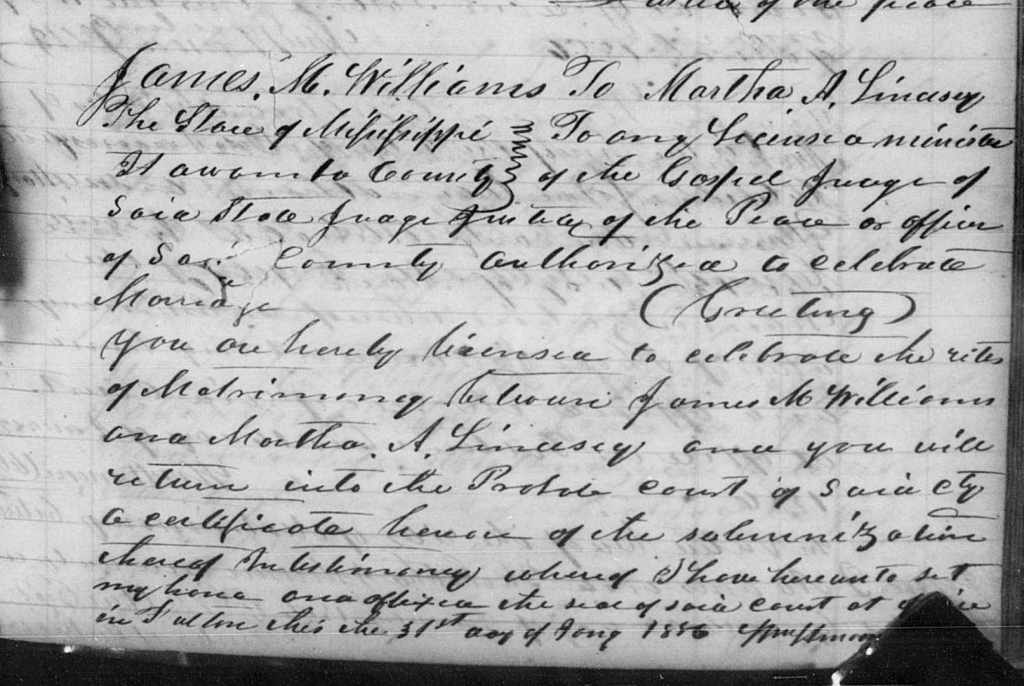 of the peace
James. M. Williams To Martha A. Lindsey
The State of Mississippi To any Licensed minister
Itawamba County of the Gospel Judge of
Said State Judge Justice of the Peace or officer
of Said County authorized to celebrate
Marriage (Greeting)
You are hereby licensed to celebrate the rites
of Matrimony between James M Williams
and Martha. A. Lindsey and you will
return into the Probate court of said cty
a certificate hereon of the solemnization
thereof In testimony whereof I have hereunto set
my hand and affixed the seal of said court at office
in Fulton this the 31st day of Jany 1856